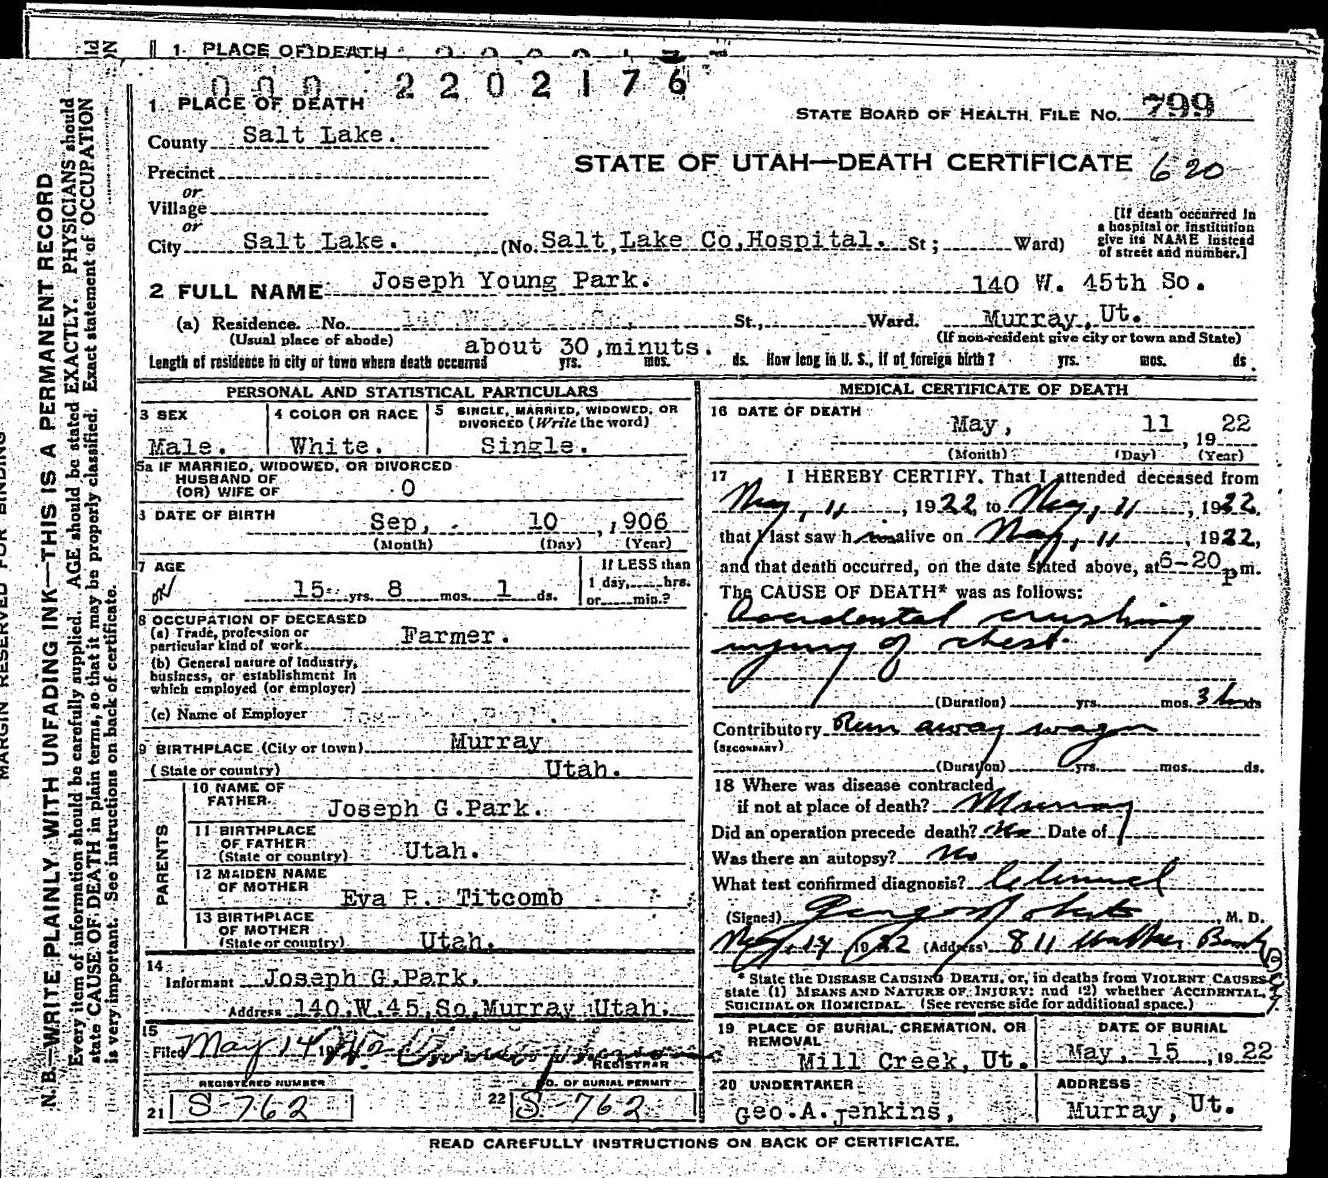 1. PLACE OF DEATH
000 2202176
1. PLACE OF DEATH
STATE BOARD OF HEALTH FILE NO. 799
County Salt Lake.
STATE OF UTAH—DEATH CERTIFICATE 620
Precinct
or
Village
or
City Salt Lake. (No. Salt Lake Co. Hospital. St; Ward)
[If death occurred in a hospital or institution give its NAME instead of street and number.]
2 FULL NAME Joseph Young Park. 140 W. 45th So.
(a) Residence. No. St., Ward. Murray, Ut.
(Usual place of abode) (If non-resident give city or town and State)
about 30, minuts.
Length of residence in city or town where death occurred yrs. mos. ds. How long in U. S., if of foreign birth? yrs. mos. ds.
PERSONAL AND STATISTICAL PARTICULARS
3 SEX Male.
4 COLOR OR RACE White.
5 SINGLE, MARRIED, WIDOWED, OR DIVORCED (Write the word) Single.
5a IF MARRIED, WIDOWED, OR DIVORCED
HUSBAND OF
(OR) WIFE OF 0
DATE OF BIRTH Sep, 10, 1906
(Month) (Day) (Year)
7 AGE 15 yrs. 8 mos. 1 ds.
If LESS than 1 day, hrs. or min.?
8 OCCUPATION OF DECEASED
(a) Trade, profession or particular kind of work Farmer.
(b) General nature of Industry, business, or establishment in which employed (or employer)
(c) Name of Employer
9 BIRTHPLACE (City or town) Murray
(State or country) Utah.
PARENTS
10 NAME OF FATHER Joseph G. Park.
11 BIRTHPLACE OF FATHER (State or country) Utah.
12 MAIDEN NAME OF MOTHER Eva P. Titcomb
13 BIRTHPLACE OF MOTHER (State or country) Utah.
14 Informant Joseph G. Park.
Address 140. W. 45, So. Murray Utah.
15 Filed May 14 19
REGISTRAR
REGISTERED NUMBER
21 S-762
NO. OF BURIAL PERMIT
22 S-762
MEDICAL CERTIFICATE OF DEATH
16 DATE OF DEATH May, 11, 1922
(Month) (Day) (Year)
17 I HEREBY CERTIFY, That I attended deceased from
May, 11, 1922, to May, 11, 1922,
that I last saw him alive on May, 11, 1922,
and that death occurred, on the date stated above, at 6-20 pm.
The CAUSE OF DEATH* was as follows:
Accidental crushing
injury of chest.
(Duration) yrs. mos. 3
Contributory Run away wagon
(SECONDARY)
(Duration) yrs. mos. ds.
18 Where was disease contracted
if not at place of death? Murray
Did an operation precede death? No Date of
Was there an autopsy? No
What test confirmed diagnosis? Clinical
(Signed) , M. D.
May, 14 1922 (Address) 811 Walker Bank
* State the DISEASE CAUSING DEATH, or, in deaths from VIOLENT CAUSES,
state (1) MEANS AND NATURE OF INJURY; and (2) whether ACCIDENTAL,
SUICIDAL OR HOMICIDAL. (See reverse side for additional space.)
19 PLACE OF BURIAL, CREMATION, OR REMOVAL
Mill Creek, Ut.
DATE OF BURIAL
May, 15, 1922
20 UNDERTAKER
Geo. A. Jenkins,
ADDRESS
Murray, Ut.
READ CAREFULLY INSTRUCTIONS ON BACK OF CERTIFICATE.
MARGIN RESERVED FOR BINDING
N. B.—WRITE PLAINLY, WITH UNFADING INK—THIS IS A PERMANENT RECORD
Every item of information should be carefully supplied. AGE should be stated EXACTLY. PHYSICIANS should
state CAUSE OF DEATH in plain terms, so that it may be properly classified. Exact statement of OCCUPATION
is very important. See instructions on back of certificate.